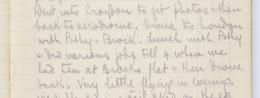 Went into Croydon to get photos & then
back to aerodrome. Drove to London
with Pethy & Brock. Lunch with Pethy
& did various jobs till 4 when we
had tea at Brock's flat & then drove
back. Very little flying in evening